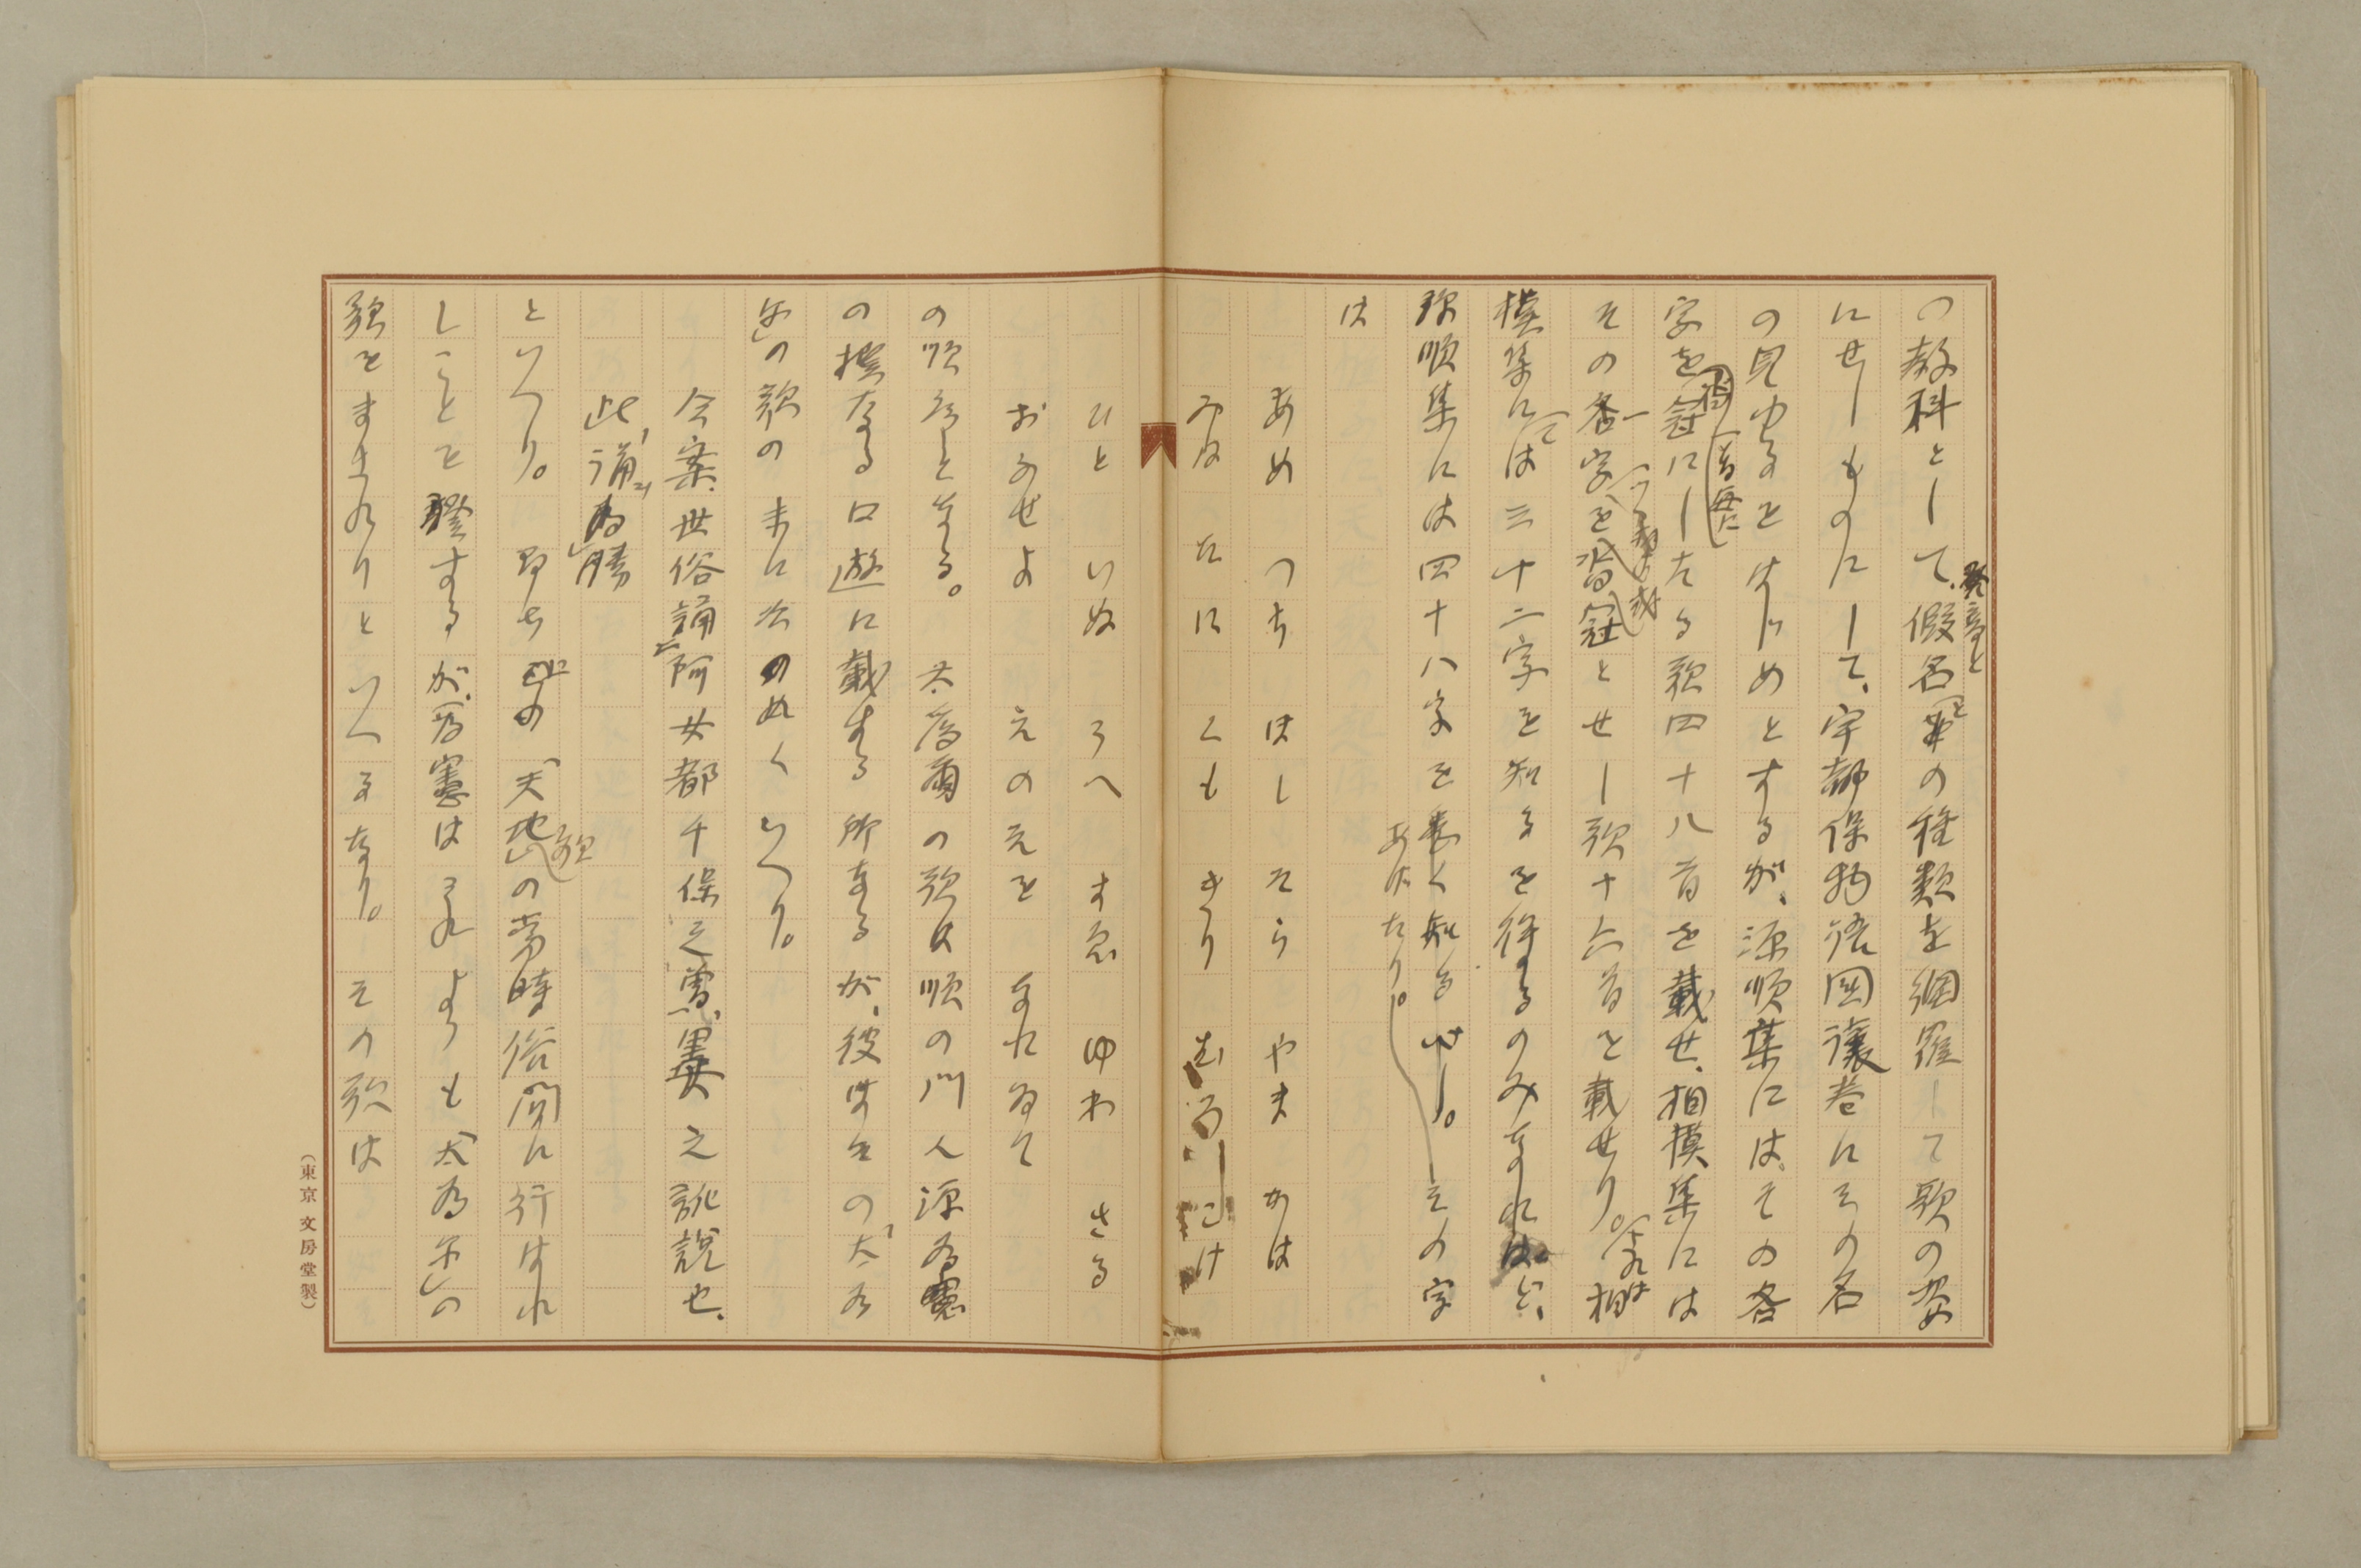 の教科として、假名の種類を網羅して歌の姿
發音と
にせしものにして、宇都保物語国讓巻にその名
の見ゆるをはじめとするが、源順集には、その各
字を冠にしたる歌四十八首を載せ、相模集には
首毎に
その各字を沓冠とせし歌十六首を載せり。相
模集には三十二字を知るを得るのみなれば、
源順集には四十八字を悉く知るべし。その字
あはたり。
は
あめ つち ほし そら やま かは
みね たに くも きり むろ こけ
ひと いぬ うへ すゑ ゆわ さる
おふせよ えのえを なれゐて
の順序となる。太為爾の歌は順の門人源為憲
の撰なる口遊に載する所なるが、彼はその「太為
尓」の歌の末に次のぬくいへり。
今案、世俗誦阿女都千保之曾、里女之訛説也、
此誦為勝
といへり。即ち「天地」の歌の當時俗間に行はれ
しことを證するが、為憲はこれよりも「太為尓」の
歌をまされりといへるなり。その歌は
(東京 文房堂製)